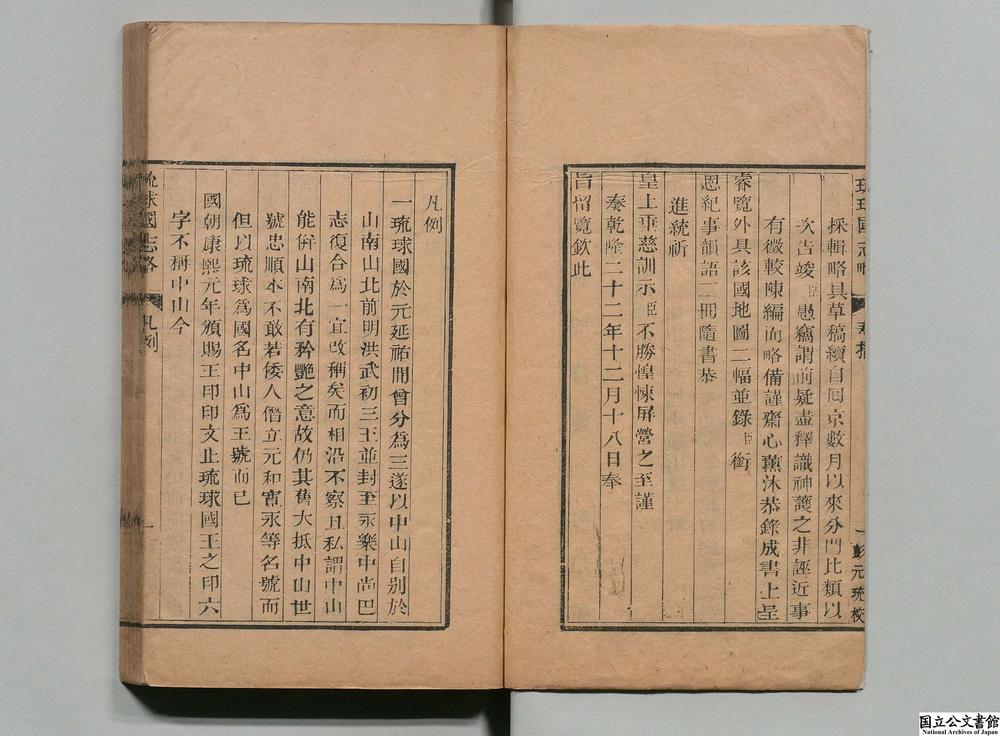 採輯略具草稿續自囘京數月以來分門比類以
次告竣臣愚竊謂前疑盡釋識神護之非誣近事
有徵較陳編而略備謹齋心薰沐恭錄成書上呈
睿覽外具該國地圖二幅並錄臣銜
恩紀事韻語二冊隨書恭
進統祈
皇上垂慈訓示臣不勝惶悚屏營之至謹
奏乾隆二十二年十二月十八日奉
旨留覽欽此
一 彭元珫校
琉球國志略 凡例 一
凡例
一琉球國於元延祐間曾分爲三遂以中山自别於
山南山北前明洪武初三王並封至永樂中尚巴
志復合爲一宜改稱矣而相沿不察且私謂中山
能併山南北有矜艷之意故仍其舊大抵中山世
號忠順本不敢若倭人僭立元和寬永等名號而
但以琉球爲國名中山爲王號而已
國朝康熙元年頒賜王印印文止琉球國王之印六
字不稱中山今
国立公文書館
National Archives of Japan